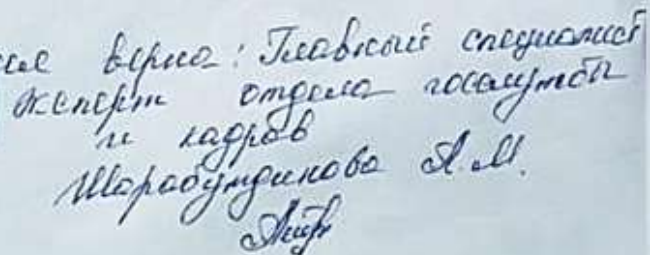 ие верно: Главный специалист
эксперт отдела госслужбы
и кадров
Шарабутдинова А.М.